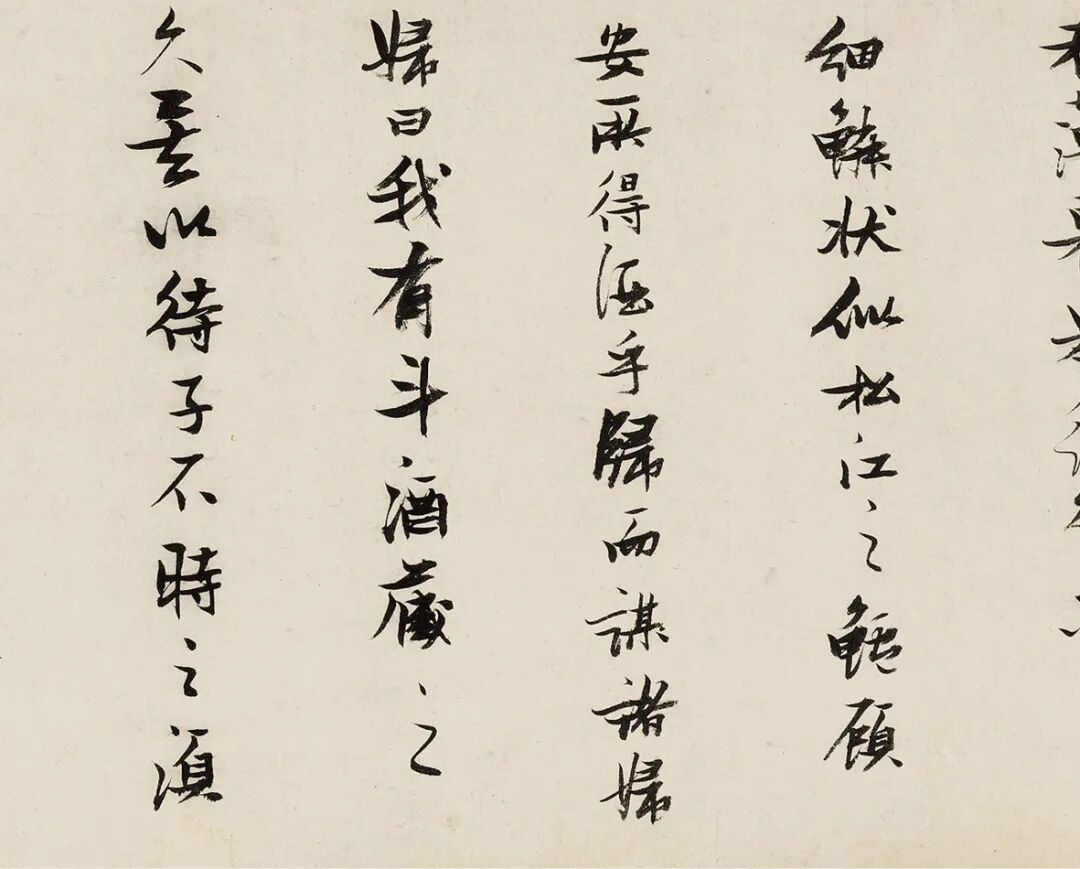 細鱗狀似松江之鱸顧
安所得酒乎歸而謀諸婦
婦曰我有斗酒藏之
久矣以待子不時之須